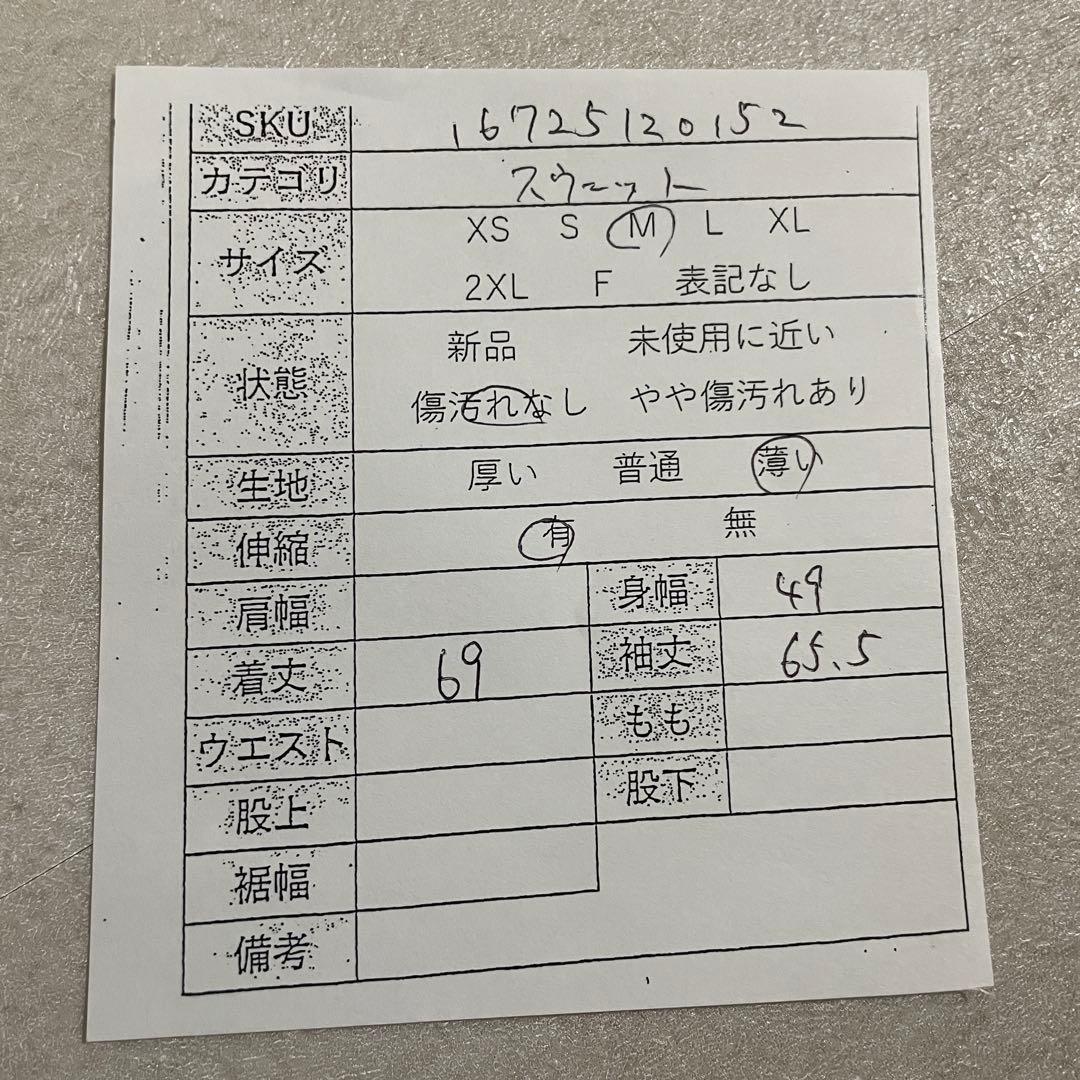 SKU 16725120152
カテゴリ スウェット
サイズ XS S M L XL
2XL F 表記なし
状態 新品 未使用に近い
傷汚れなし やや傷汚れあり
生地 厚い 普通 薄い
伸縮 有 無
肩幅 身幅 49
着丈 69 袖丈 65.5
ウエスト もも
股上 股下
裾幅
備考